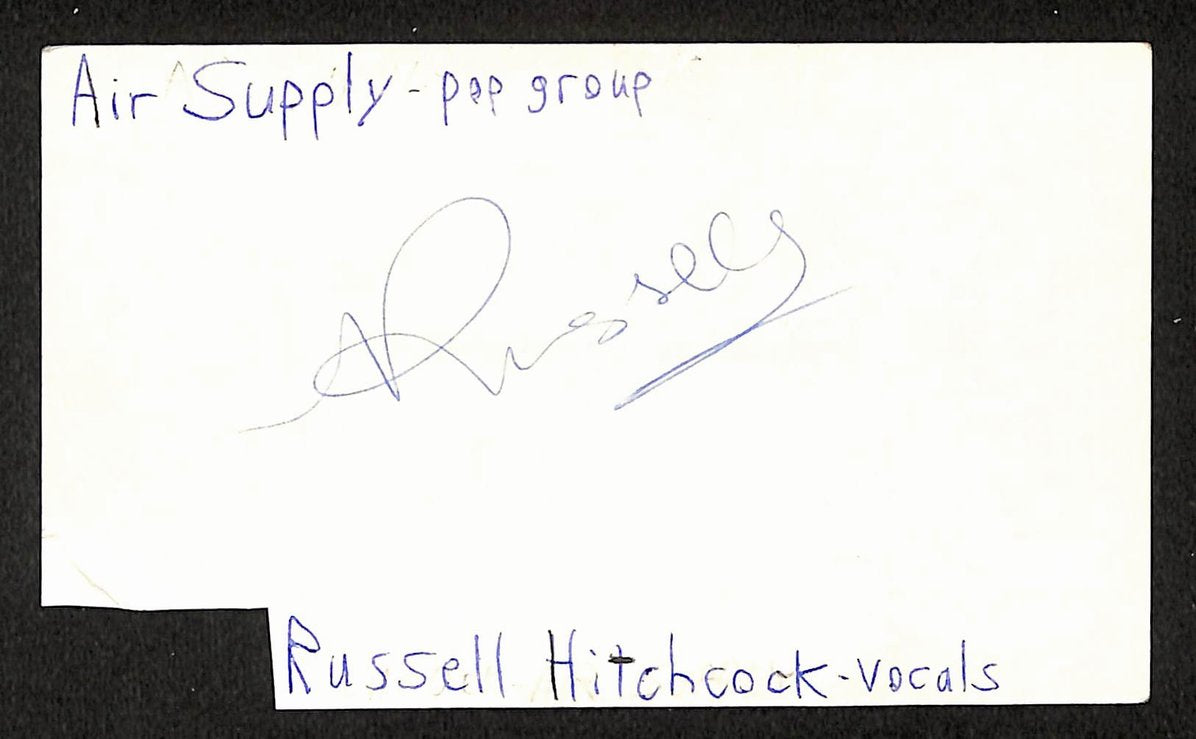 Air Supply - pop group
Russell
Russell Hitchcock - vocals